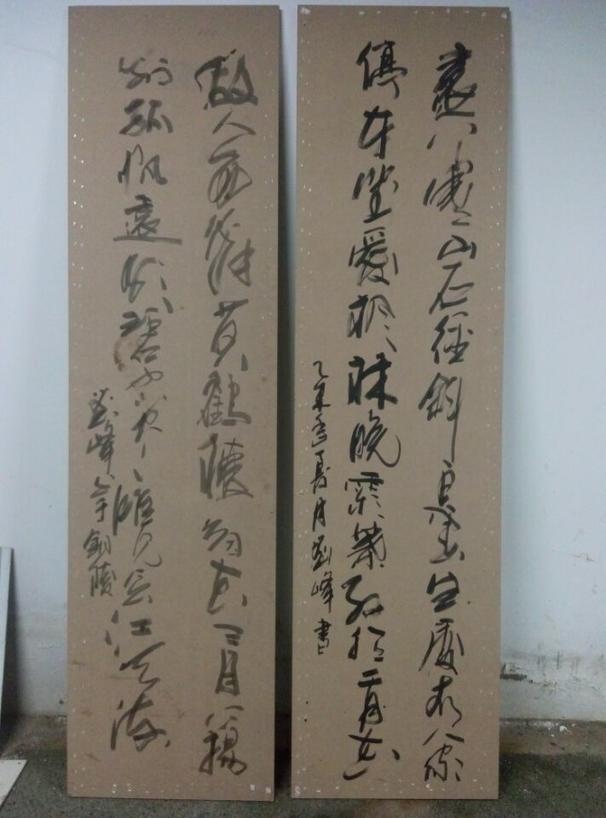 遠上寒山石徑斜白雲生處有人家
停車坐愛楓林晚霜葉紅於二月花
乙未年夏月劉峰書
故人西辭黃鶴樓烟花三月下揚
州孤帆遠影碧空盡唯見長江天
劉峰于銅陵